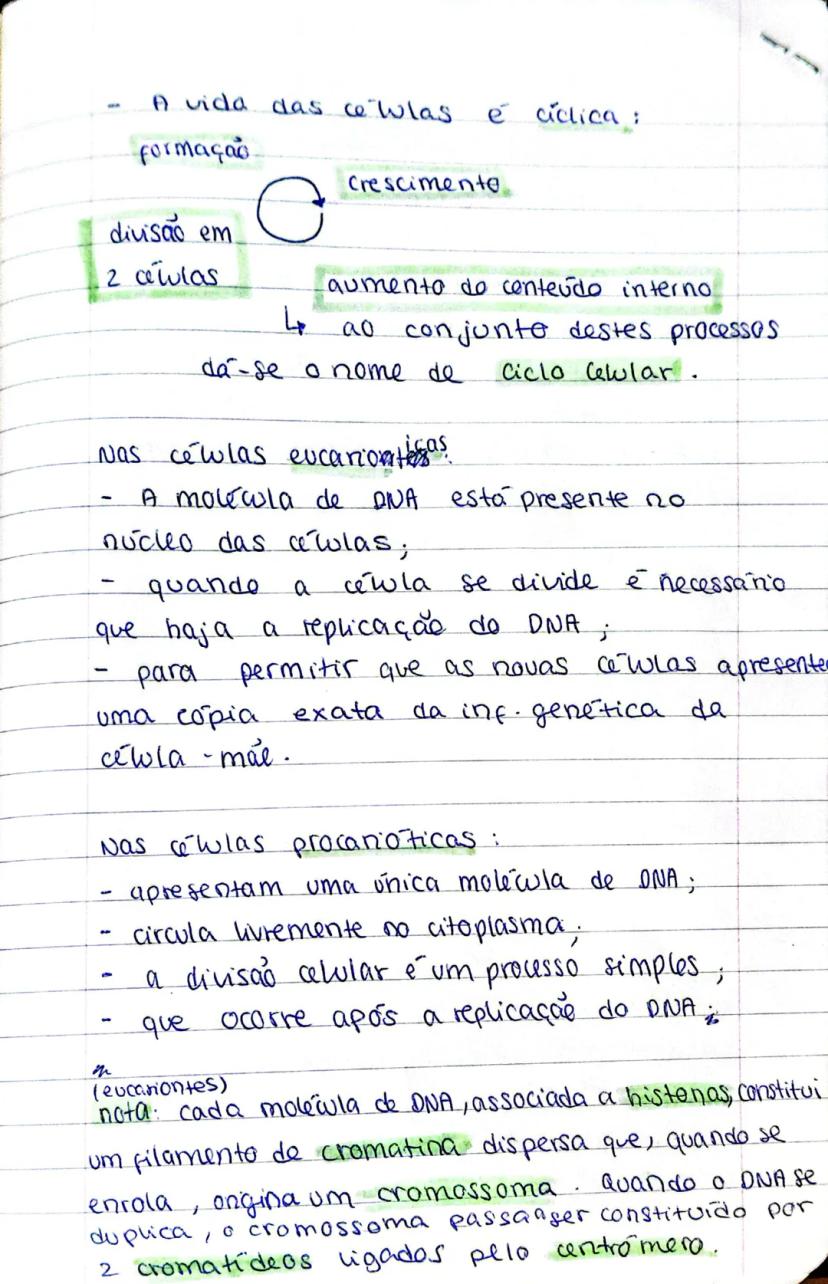 - A vida das células é cíclica:
formação
crescimento
divisão em
2 células
aumento do conteúdo interno
↳ ao conjunto destes processos
dá-se o nome de ciclo celular.
Nas células eucarióticas:
- A molécula de DNA está presente no
núcleo das células;
- quando a célula se divide é necessário
que haja a replicação do DNA;
- para permitir que as novas células apresente
uma cópia exata da inf. genética da
célula-mãe.
Nas células procarióticas:
- apresentam uma única molécula de DNA;
- circula livremente no citoplasma;
- a divisão celular é um processo simples;
- que ocorre após a replicação do DNA;
(eucariontes)
nota: cada molécula de DNA, associada a histonas, constitui
um filamento de cromatina dispersa que, quando se
enrola, origina um cromossoma. Quando o DNA se
duplica, o cromossoma passa a ser constituído por
2 cromatídeos ligados pelo centrómero.